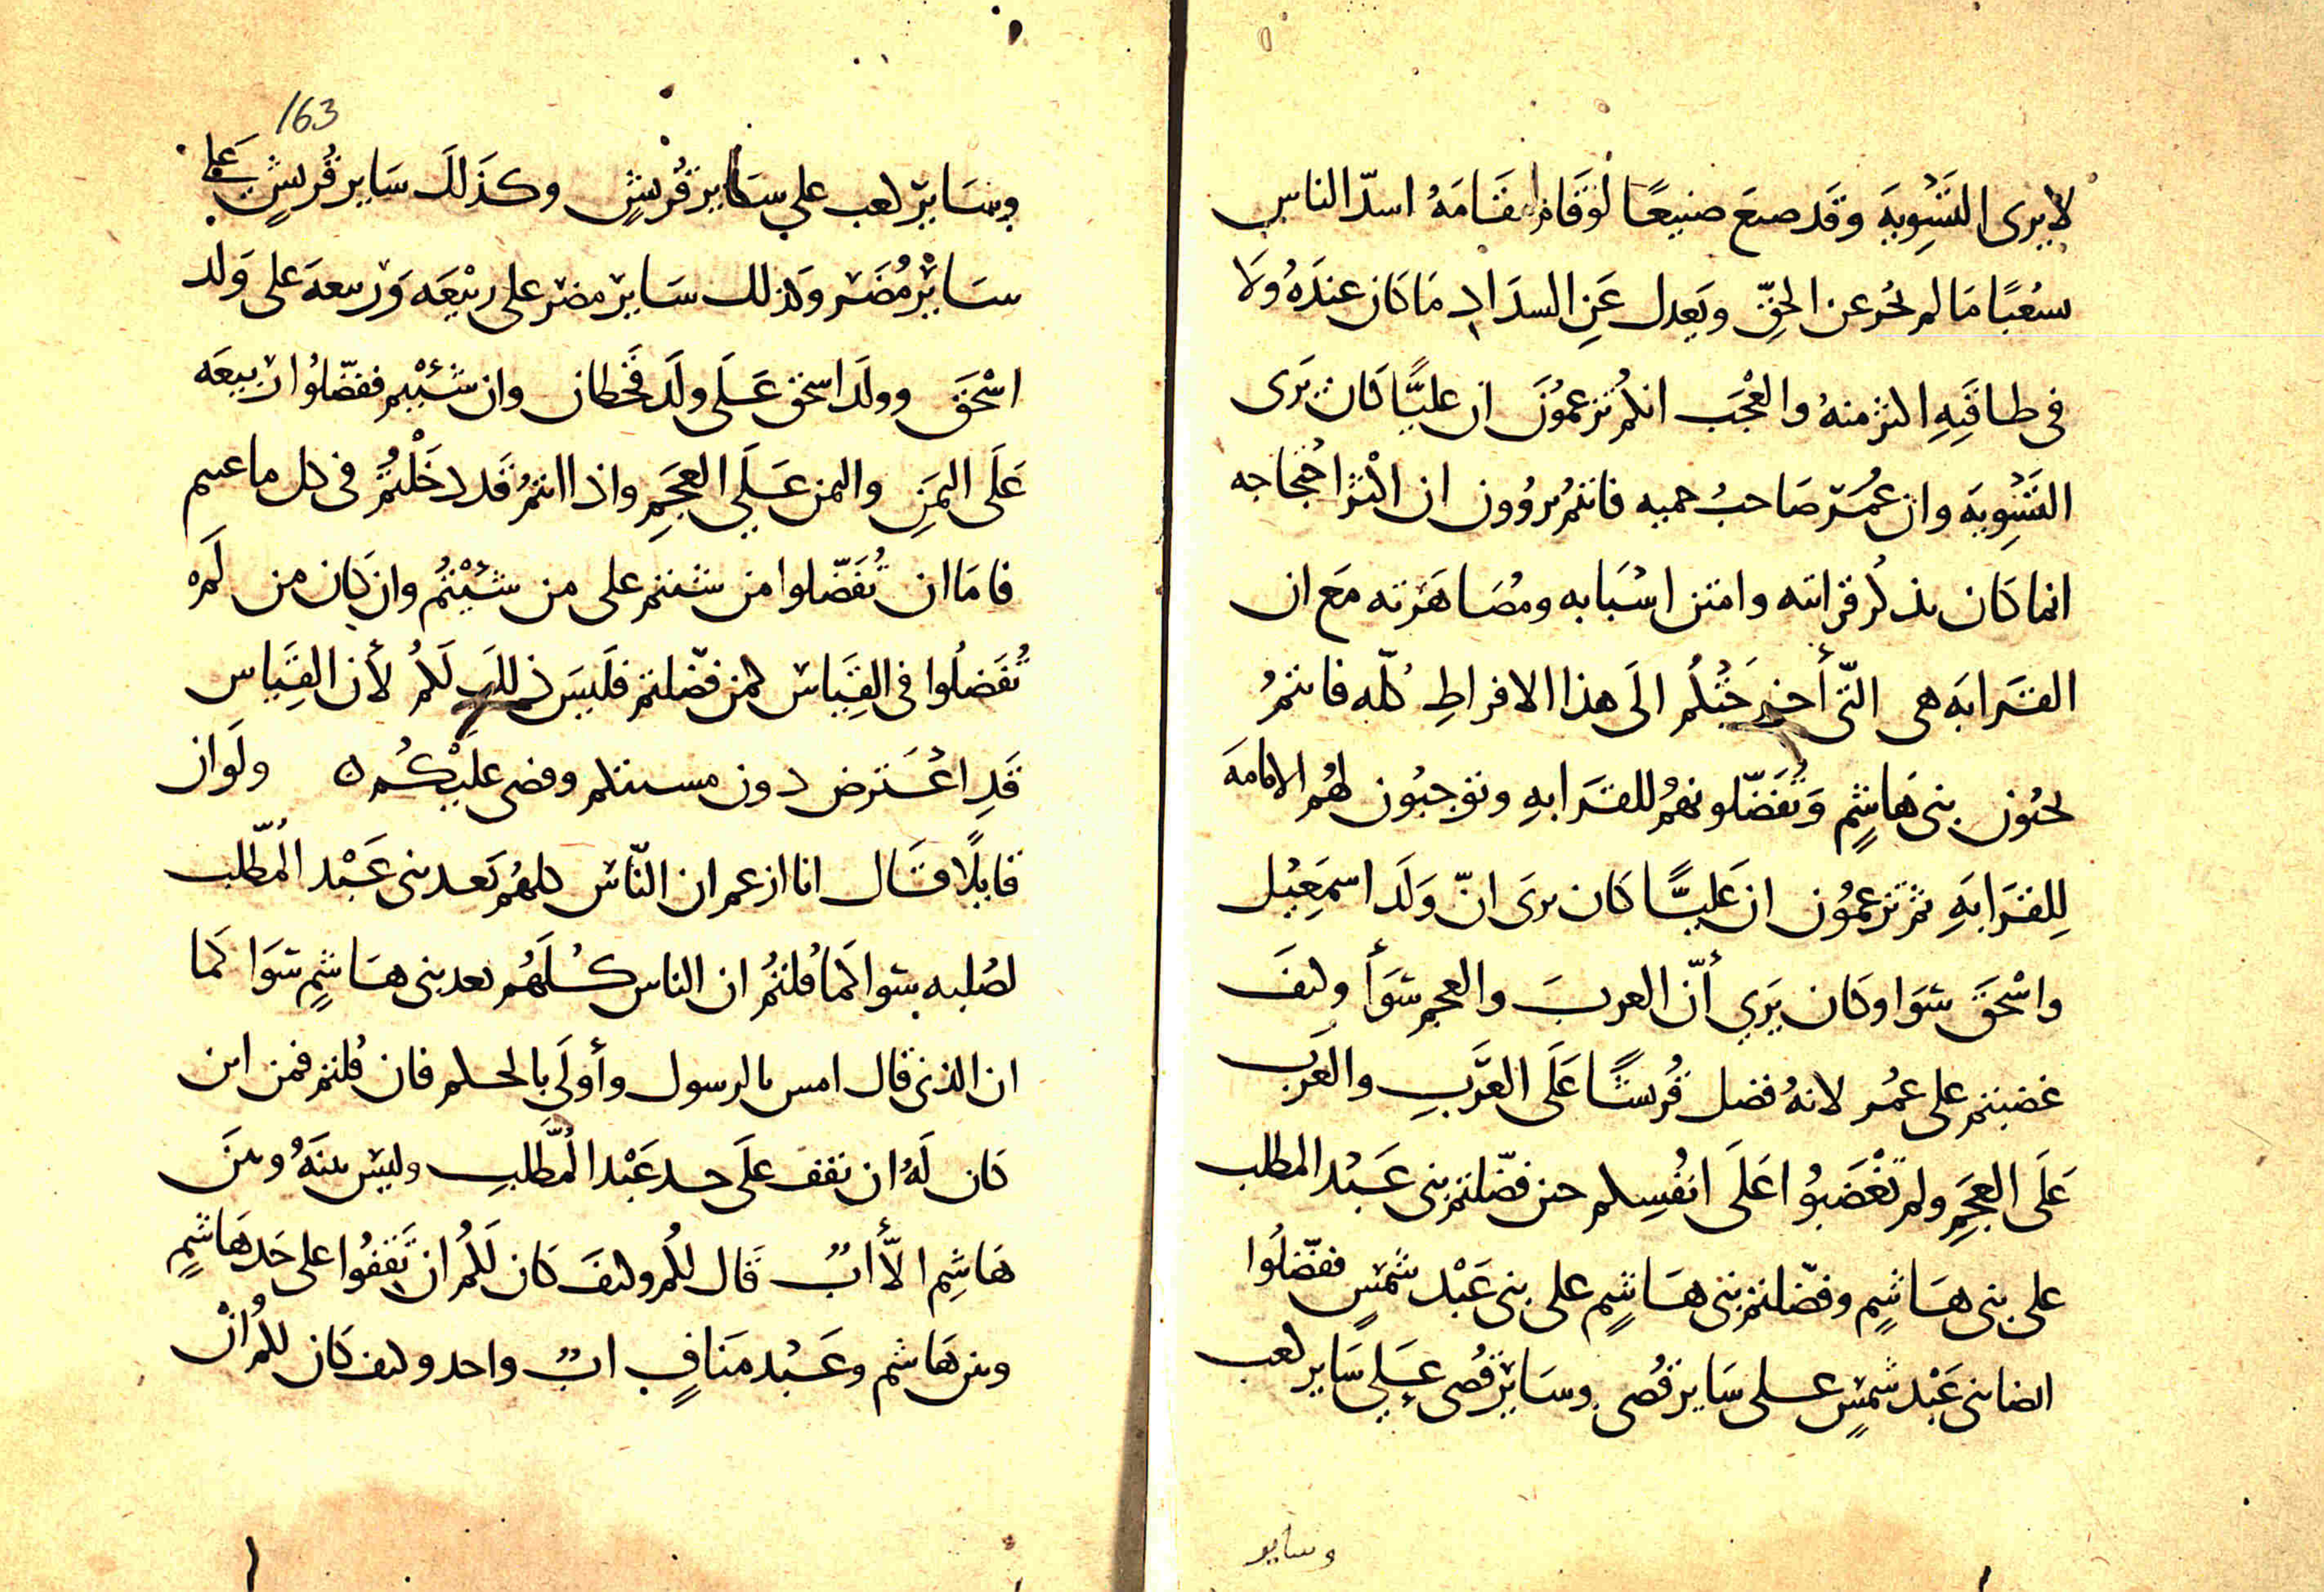 لا يرى التَسْوِيَة وقَد صنع صنيعًا لوقَام مقَامَهُ اسدّ الناس
سعْبًا مَا لم يحُر عن الحقّ ويَعدل عَنِ السدَاد مَا كَان عندَهُ وَلَا
فى طاقَتِهِ اكثر منهُ والعْجَب انكُم تزعمُوَن ان عليًّا كَان يَرَى
التَسْوِيَة وان عُمَر صَاحبُ حميه فانتُم تروُون ان اكْثَر احْتجاجه
انما كَان بذكُر قرابته وامتن اسْبَابه ومُصَاهَرَته مَع ان
القَرابَه هى التّى أخرجَتْكُم الَى هذا الافراطِ كُلّه فانتمُ
تحبُون بنى هَاشِم وَتُفَضّلونهُم للقَرَابهِ وتوجبُون لهُم الامامَة
لِلقَرَابَهِ ثم تزعمُون ان عَليًّا كَان يرَى انّ وَلَد اسمَعِيْل
واسْحَقَ سَوَا وكَان يَرَي أنّ العربَ والعجم سَوَأ وكيفَ
غضبتم على عمُر لانهُ فضل قُريشًا عَلَى العَرَبِ والعَرَب
عَلَى العجَمِ ولم تَغْضَبُوا عَلَى انفُسِكم حين فضّلتم بنى عَبْد المطلب
على بنى هَاشِمٍ وفضّلتم بنى هَاشِمٍ على بنى عَبْد شمسٍ ففضّلُوا
ايضا بنى عَبْد شمسٍ على سَاير قُصى وسَاير قُصى عَلَي سَاير كعب
وساير
163
وسَاير كعب علي سَاير قُريشٍ وكذَلكَ سَاير قُريشٍ عَلي
سَايْر مُضَر وكذلك سَاير مضر على ربْيعَه وَربيعهَ على وَلد
اسْحَقَ وولَد اسحق عَلَى ولَد قَحطان وان شئْتم ففضّلُوا رَبيعَه
عَلَى اليمَنِ واليمن عَلَي العجَمِ واذا انتمُ قَد دخَلْتُمْ فى كل ما عبتم
فامَا ان تُفَضّلوا من شئتم على من شئْتمُ وان كَان من لَم
تُفَضلُوا فى القِيَاس كمن فضّلتم فلَيسَ ذلكَ لَكُم لأن القِيَاس
قَدِ اعْتَرض دون مسيتكم وقضى عليْكُم ولَو ان
قايلًا قَال انا ازعم ان النّاس كلهُم بَعد بنى عَبْد المُطّلب
لصُلبه سَوا كَما قُلتُم ان الناس كُلَهُم بعد بنى هَاشمٍ سَوَا كَما
ان الذى قال امس بالرسول وأولَى بالحكم فان قُلتم فمن اين
كَان لَهُ ان تقف علَى حد عَبْد المُطّلبِ وليس بينَهُ وبينَ
هَاشِم الّا أبٌ قَال لكُم وكيفَ كَان لَكُم ان تَقفُوا على حَد هَاشمٍ
وبين هَاشم وعَبْد مَنَافٍ ابٌ واحد وكيف كَان لكُم انْ